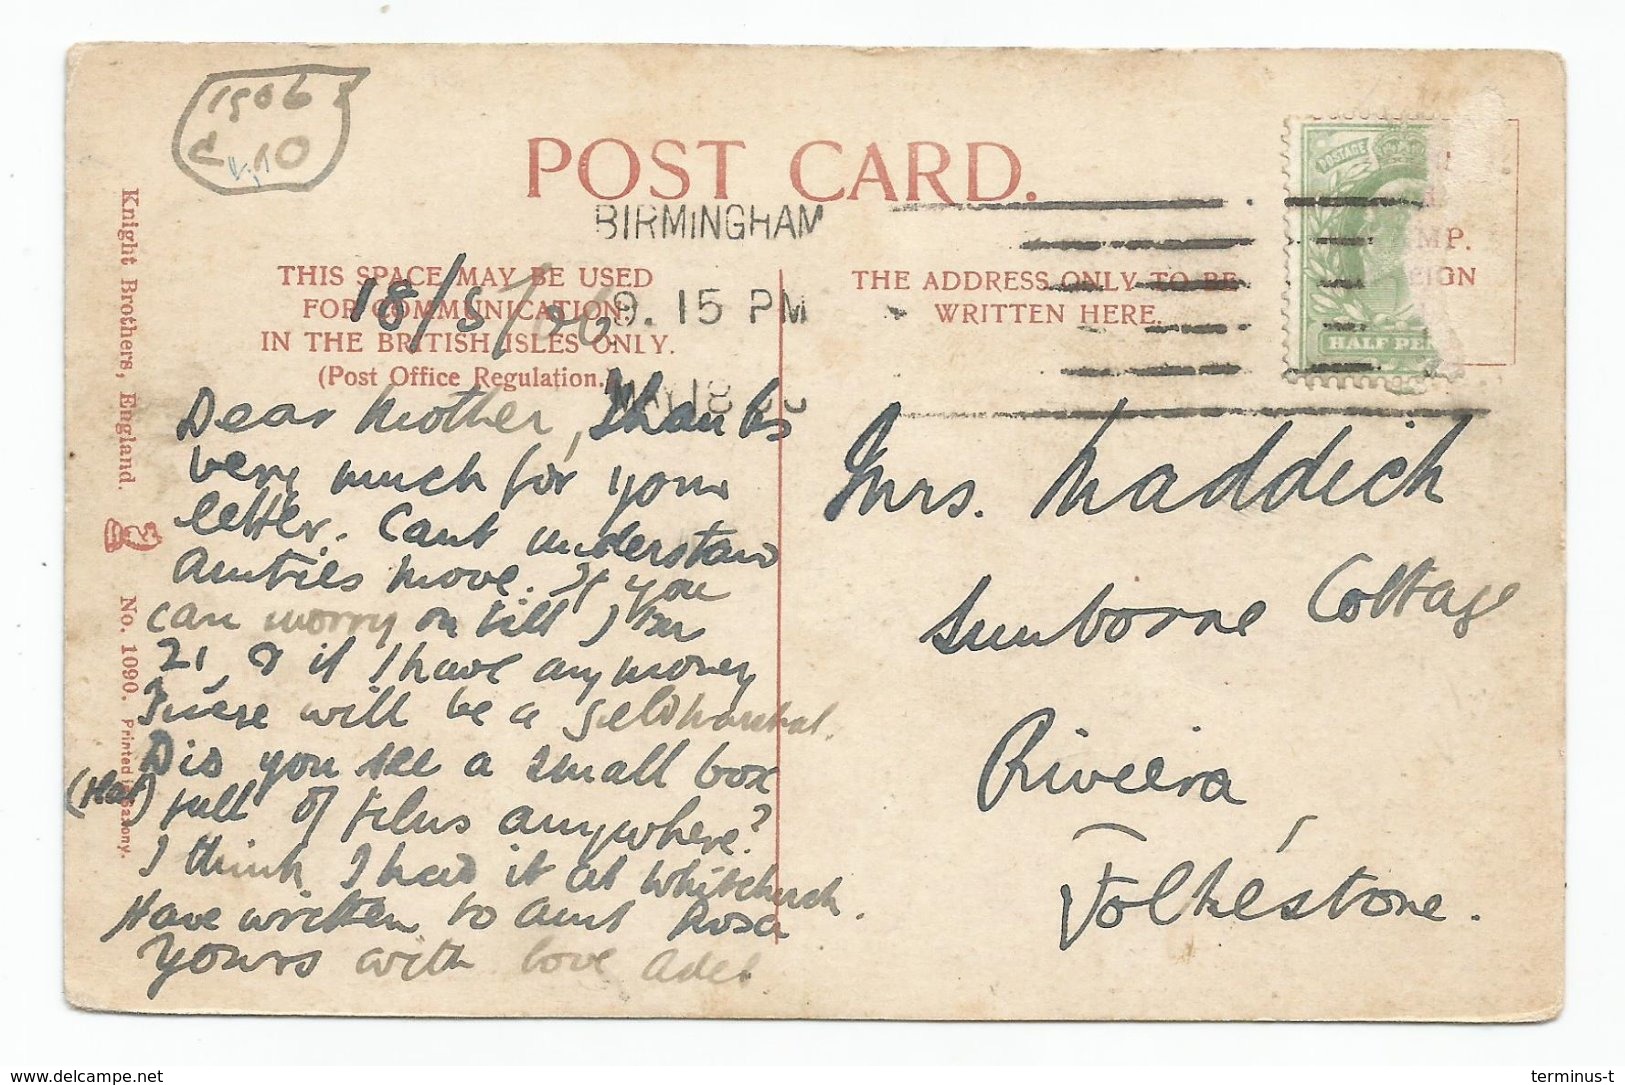 1906
POST CARD.
BIRMINGHAM
9. 15 PM
MAY 18 06
THIS SPACE MAY BE USED
FOR COMMUNICATION
IN THE BRITISH ISLES ONLY.
(Post Office Regulation.)
18/5/06
THE ADDRESS ONLY TO BE
WRITTEN HERE.
POSTAGE
HALF PEN
MP.
EIGN
Knight Brothers, England.
No. 1090. Printed in Saxony.
Dear Mother, Thanks
very much for your
letter. Cant understand
Aunties move. If you
can worry on till I am
21 & if I have any money
There will be a
Did you see a small box
(flat) full of films anywhere?
I think I had it at Whitchurch.
Have written to Aunt Rosa
Yours with love
Mrs. Maddick
Sunborne Cottage
Riviera
Folkestone.
delcampe.net
terminus-t